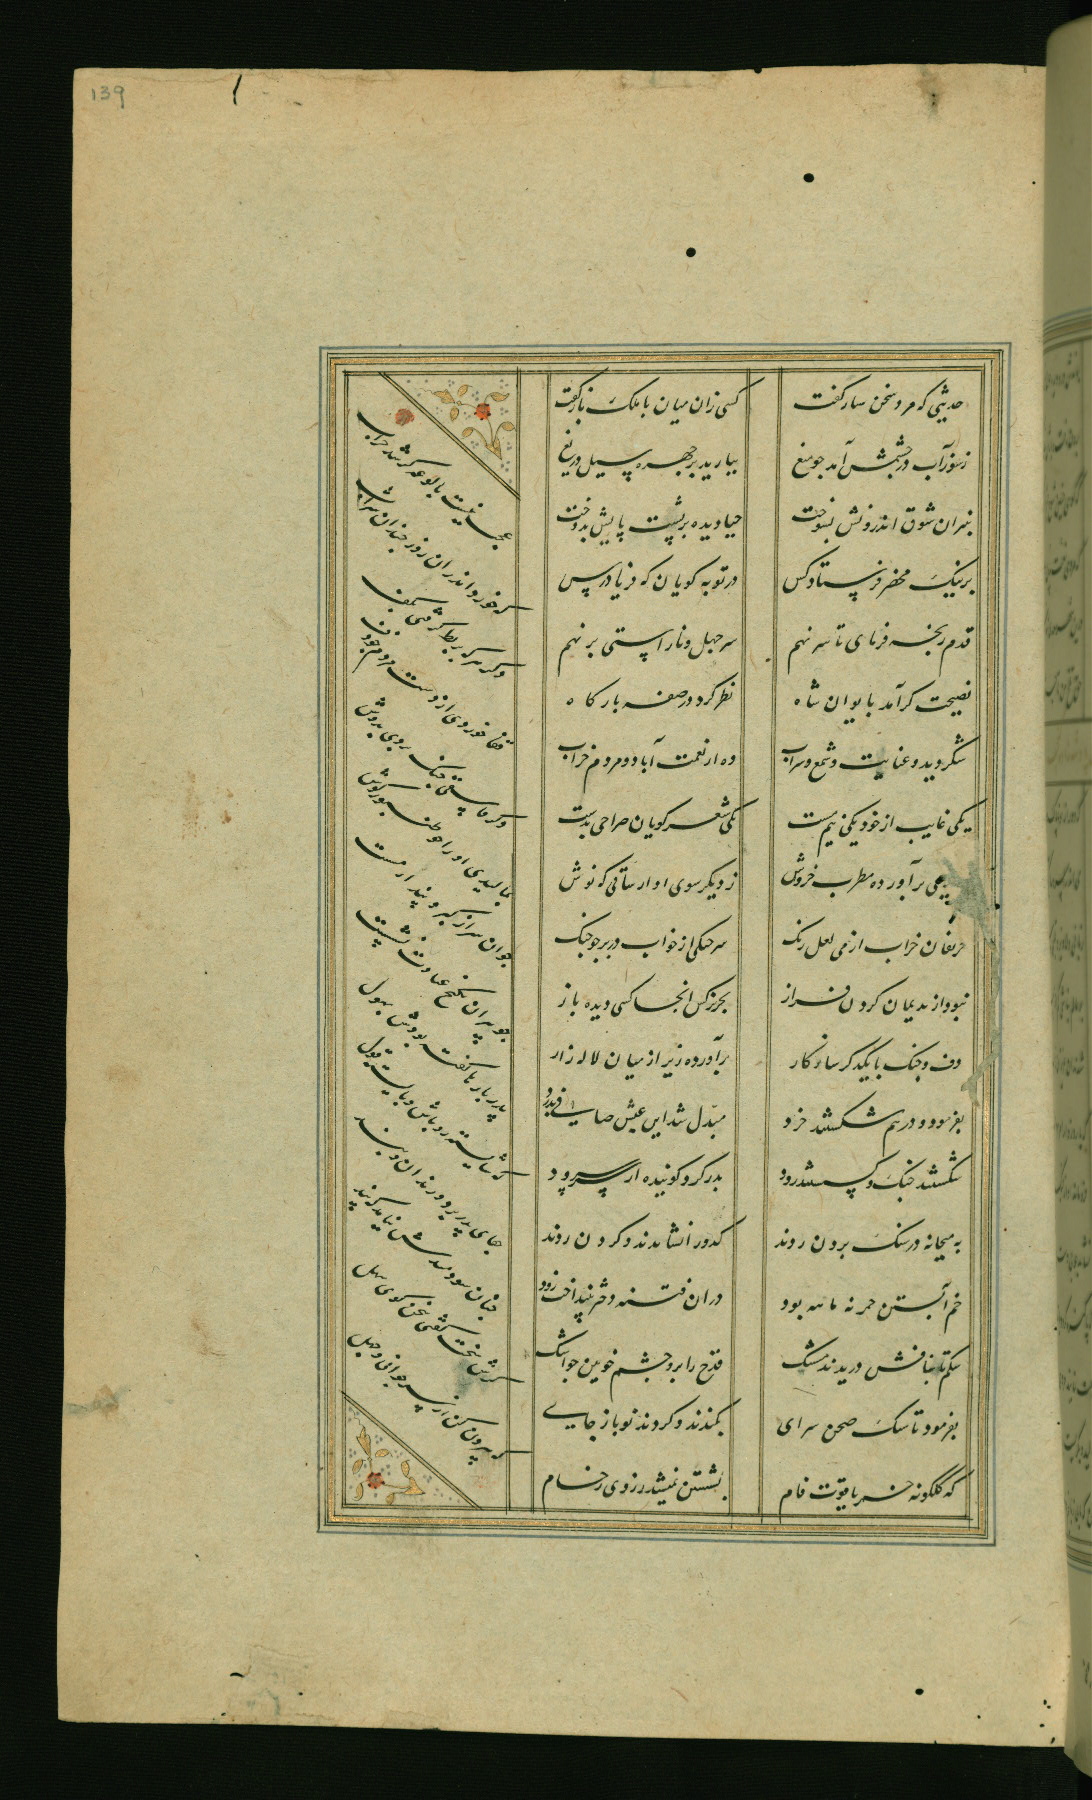 139
حدیثی که مرد سخن ساز گفت کسی زان میان با ملک باز گفت
ز سوز آب در چشمش آمد چو میغ ببارید بر چهره سیل دریغ
بنیران شوق اندرونش بسوخت حیا دیده بر پشت پایش بدوخت
بر نیک محضر فرستاد کس در توبه کوبان که فریاد رس
قدم رنجه فرمای تا سر نهم سر جهل و ناراستی بر نهم
نصیحت گر آمد بایوان شاه نظر کرد در صفه بارگاه
شکر دید و عناب و شمع و شراب ده از نعمت آباد و مردم خراب
یکی غایب از خود یکی نیم مست یکی شعر گویان صراحی بدست
برآورده مطرب خروش ز دیگر سوی آواز ساقی که نوش
حریفان خراب از می لعل رنگ سر چنگی از خواب در بر چو چنگ
نبود از ندیمان گردن فراز بجز نرکس انجا کسی دیده باز
دف و چنگ با یکدگر سازگار برآورده زیر از میان لاله زار
بفرمود و درهم شکستند خرد مبدّل شد این عیش صافی بدرد
شکستند چنگ و گسستند رود بدر کرد گوینده از سر سرود
به میخانه در سنگ بر دن زدند کدو را نشاندند و گردن زدند
خم آبستن خمر نه ماهه بود در ان فتنه دختر بینداخت زود
شکم تا بنافش دریدند مشک قدح را برو چشم خونین
بفرمود تا سنگ صحن سرای بکندند و کردند نو باز جای
که گلگونه خمر یاقوت فام بشستن نمیشد ز روی رخام
عجب نیست بالوعه گر شد خراب
که خورد اندر ان روز چندان شراب
وگر هر که بربط گرفتی بکف
قفا خوردی از دست مردم چو دف
وگر فاسقی چنگ بردی بدوش
بمالیدی او را چو طنبور گوش
جوان سر از کبر و پندار مست
چو پیران بکنج عبادت نشست
پدر بارها گفته بودش بهول
که شایسته رو باش و بایسته قول
جفای پدر برد و زندان و بند
چنان سودمندش نیامد که پند
گرش سخت گفتی سخن گوی سهل
که بیرون کن از سر جوانی و جهل